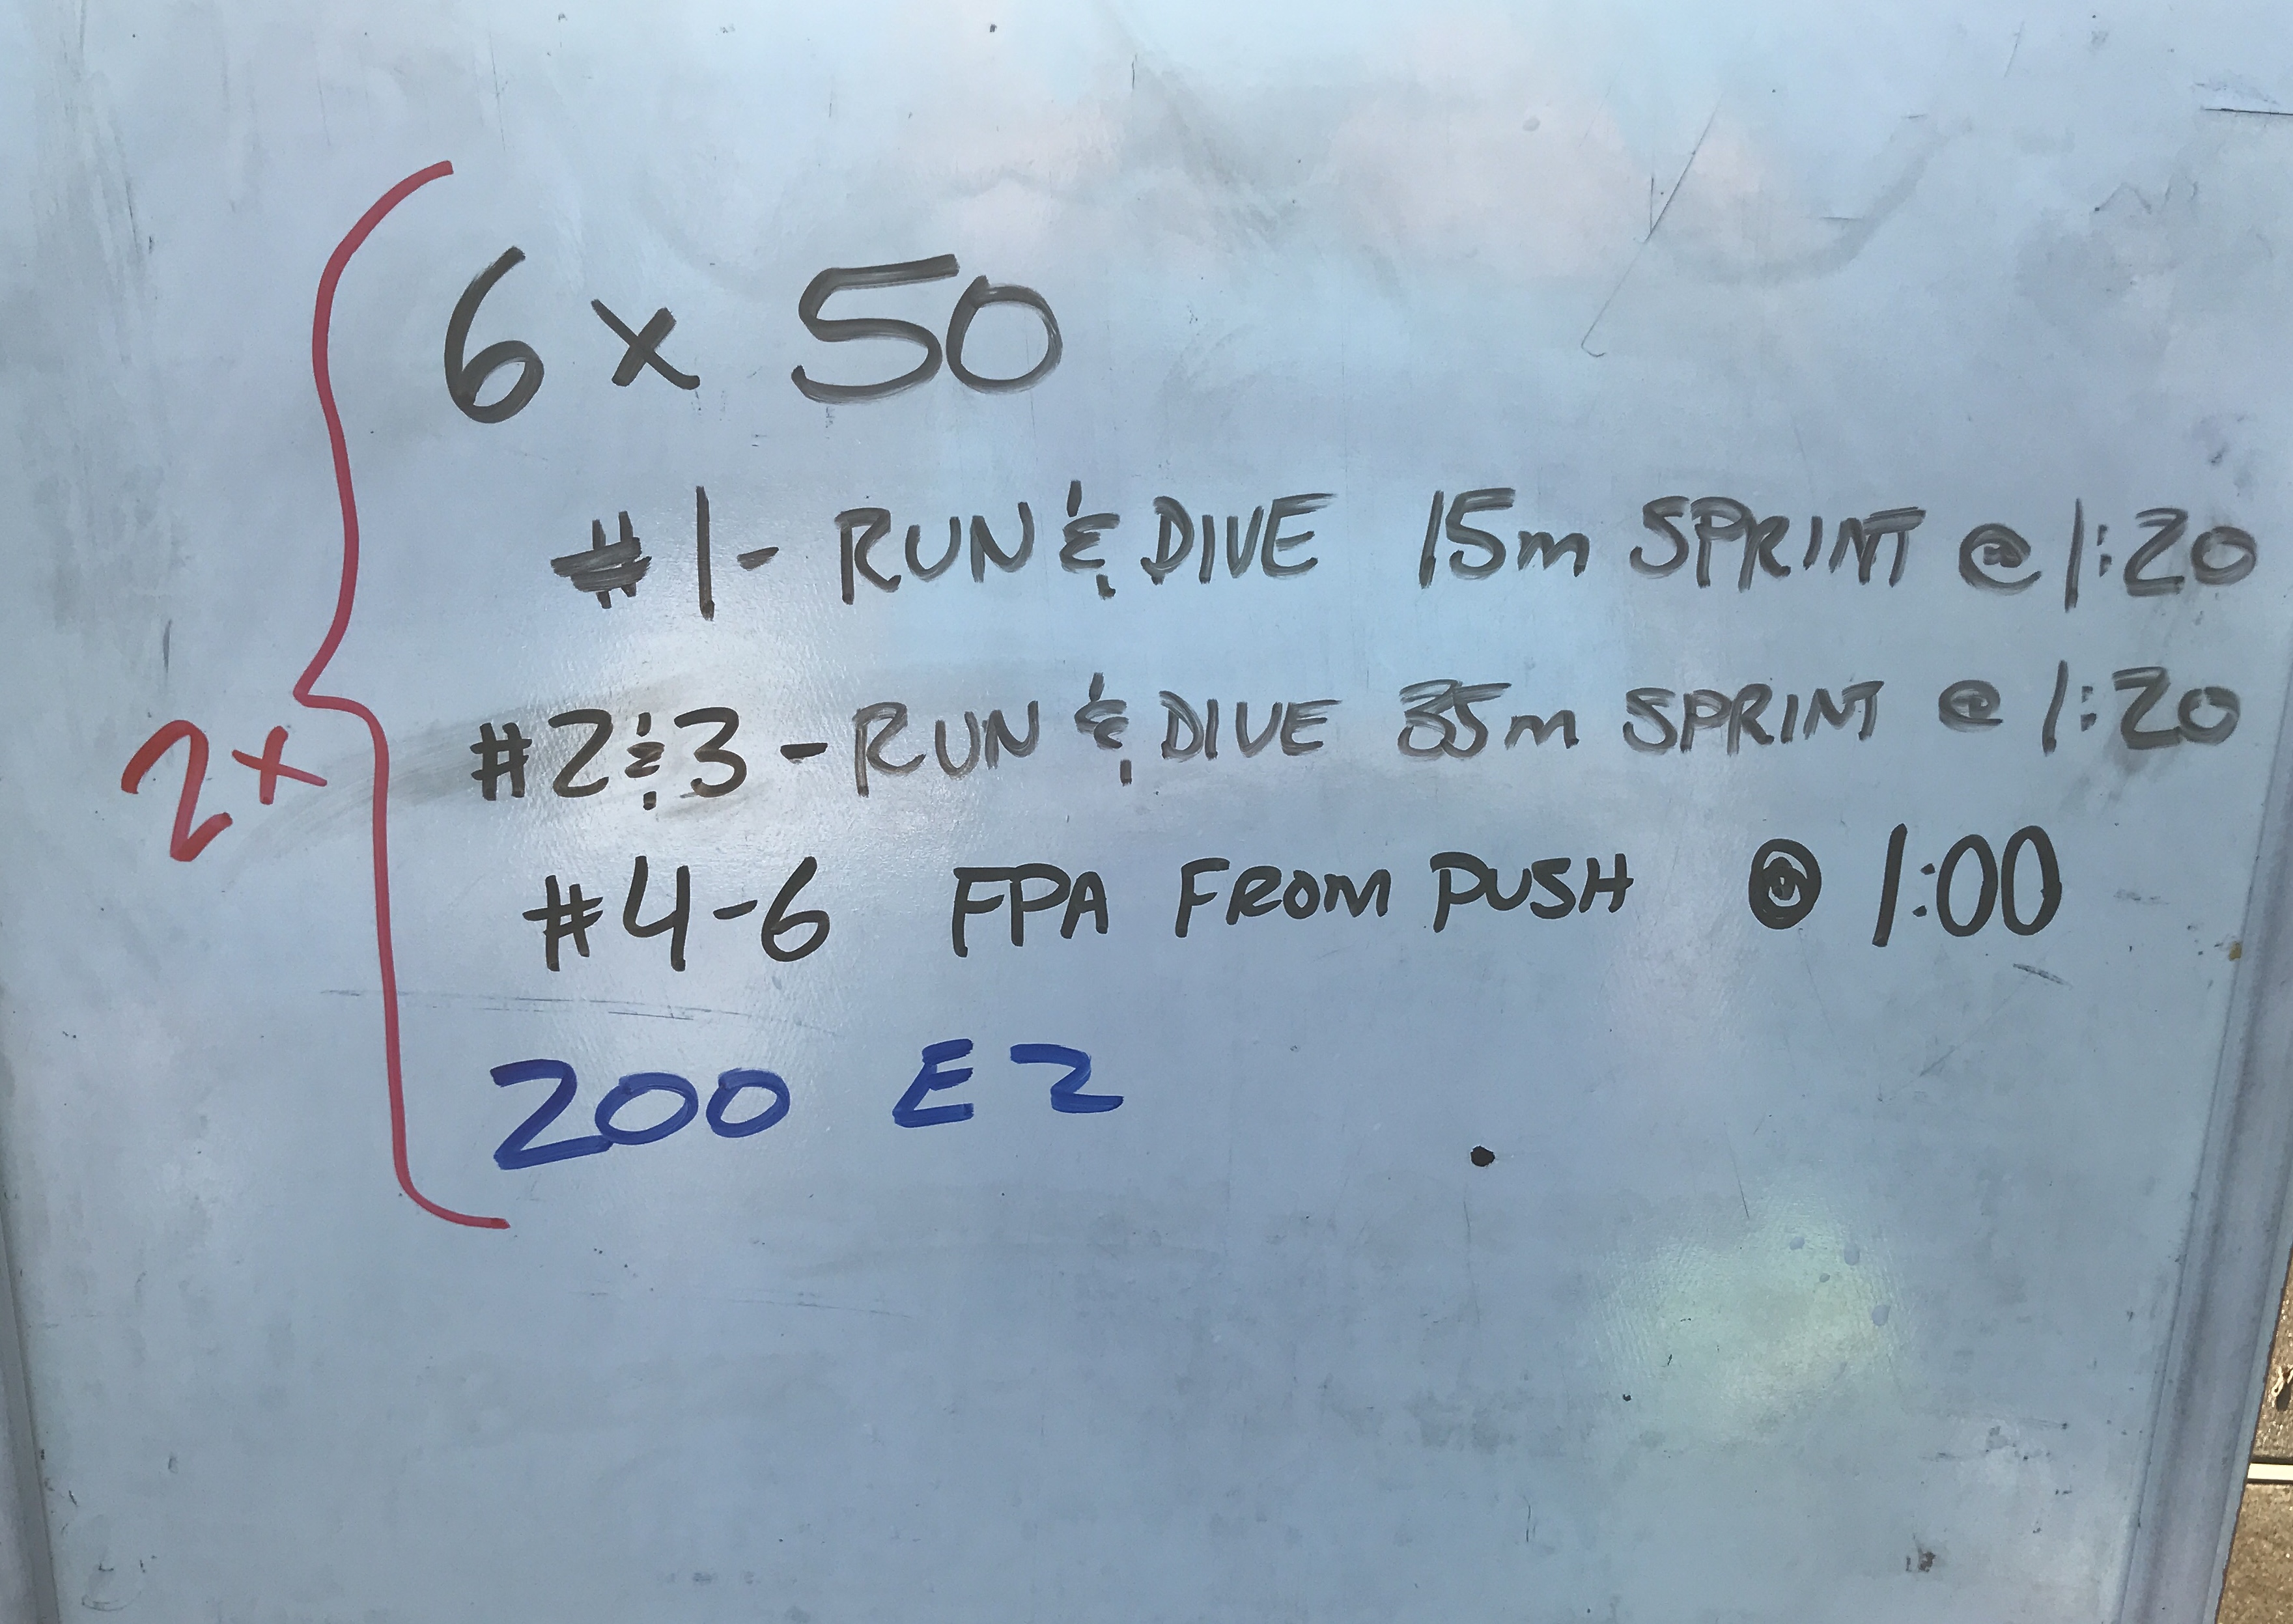 6 x 50
#1 - RUN & DIVE 15m SPRINT @ 1:20
2x
#2 & 3 - RUN & DIVE 35m SPRINT @ 1:20
#4-6 FPA FROM PUSH @ 1:00
200 EZ